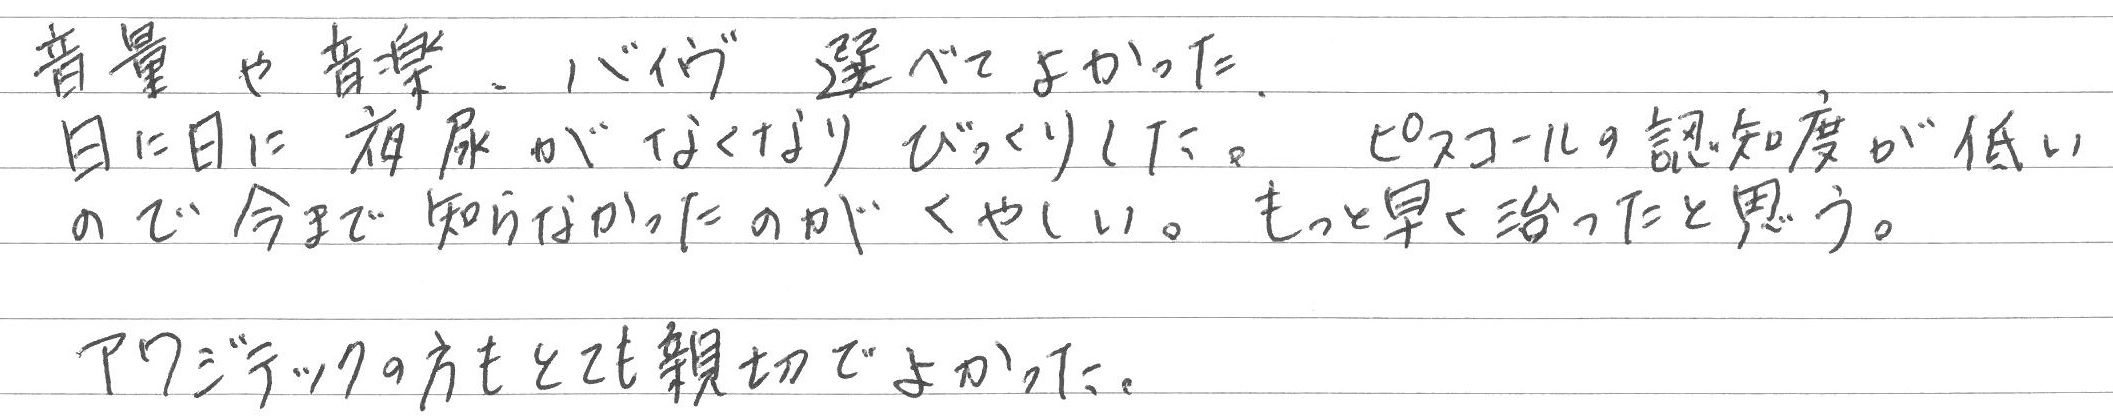 音量や音楽、バイヴ 選べてよかった.
日に日に 夜尿がなくなりびっくりした。 ピスコールの認知度が低い
ので今まで知らなかったのがくやしい。もっと早く治ったと思う。
アワジテックの方もとても親切でよかった。